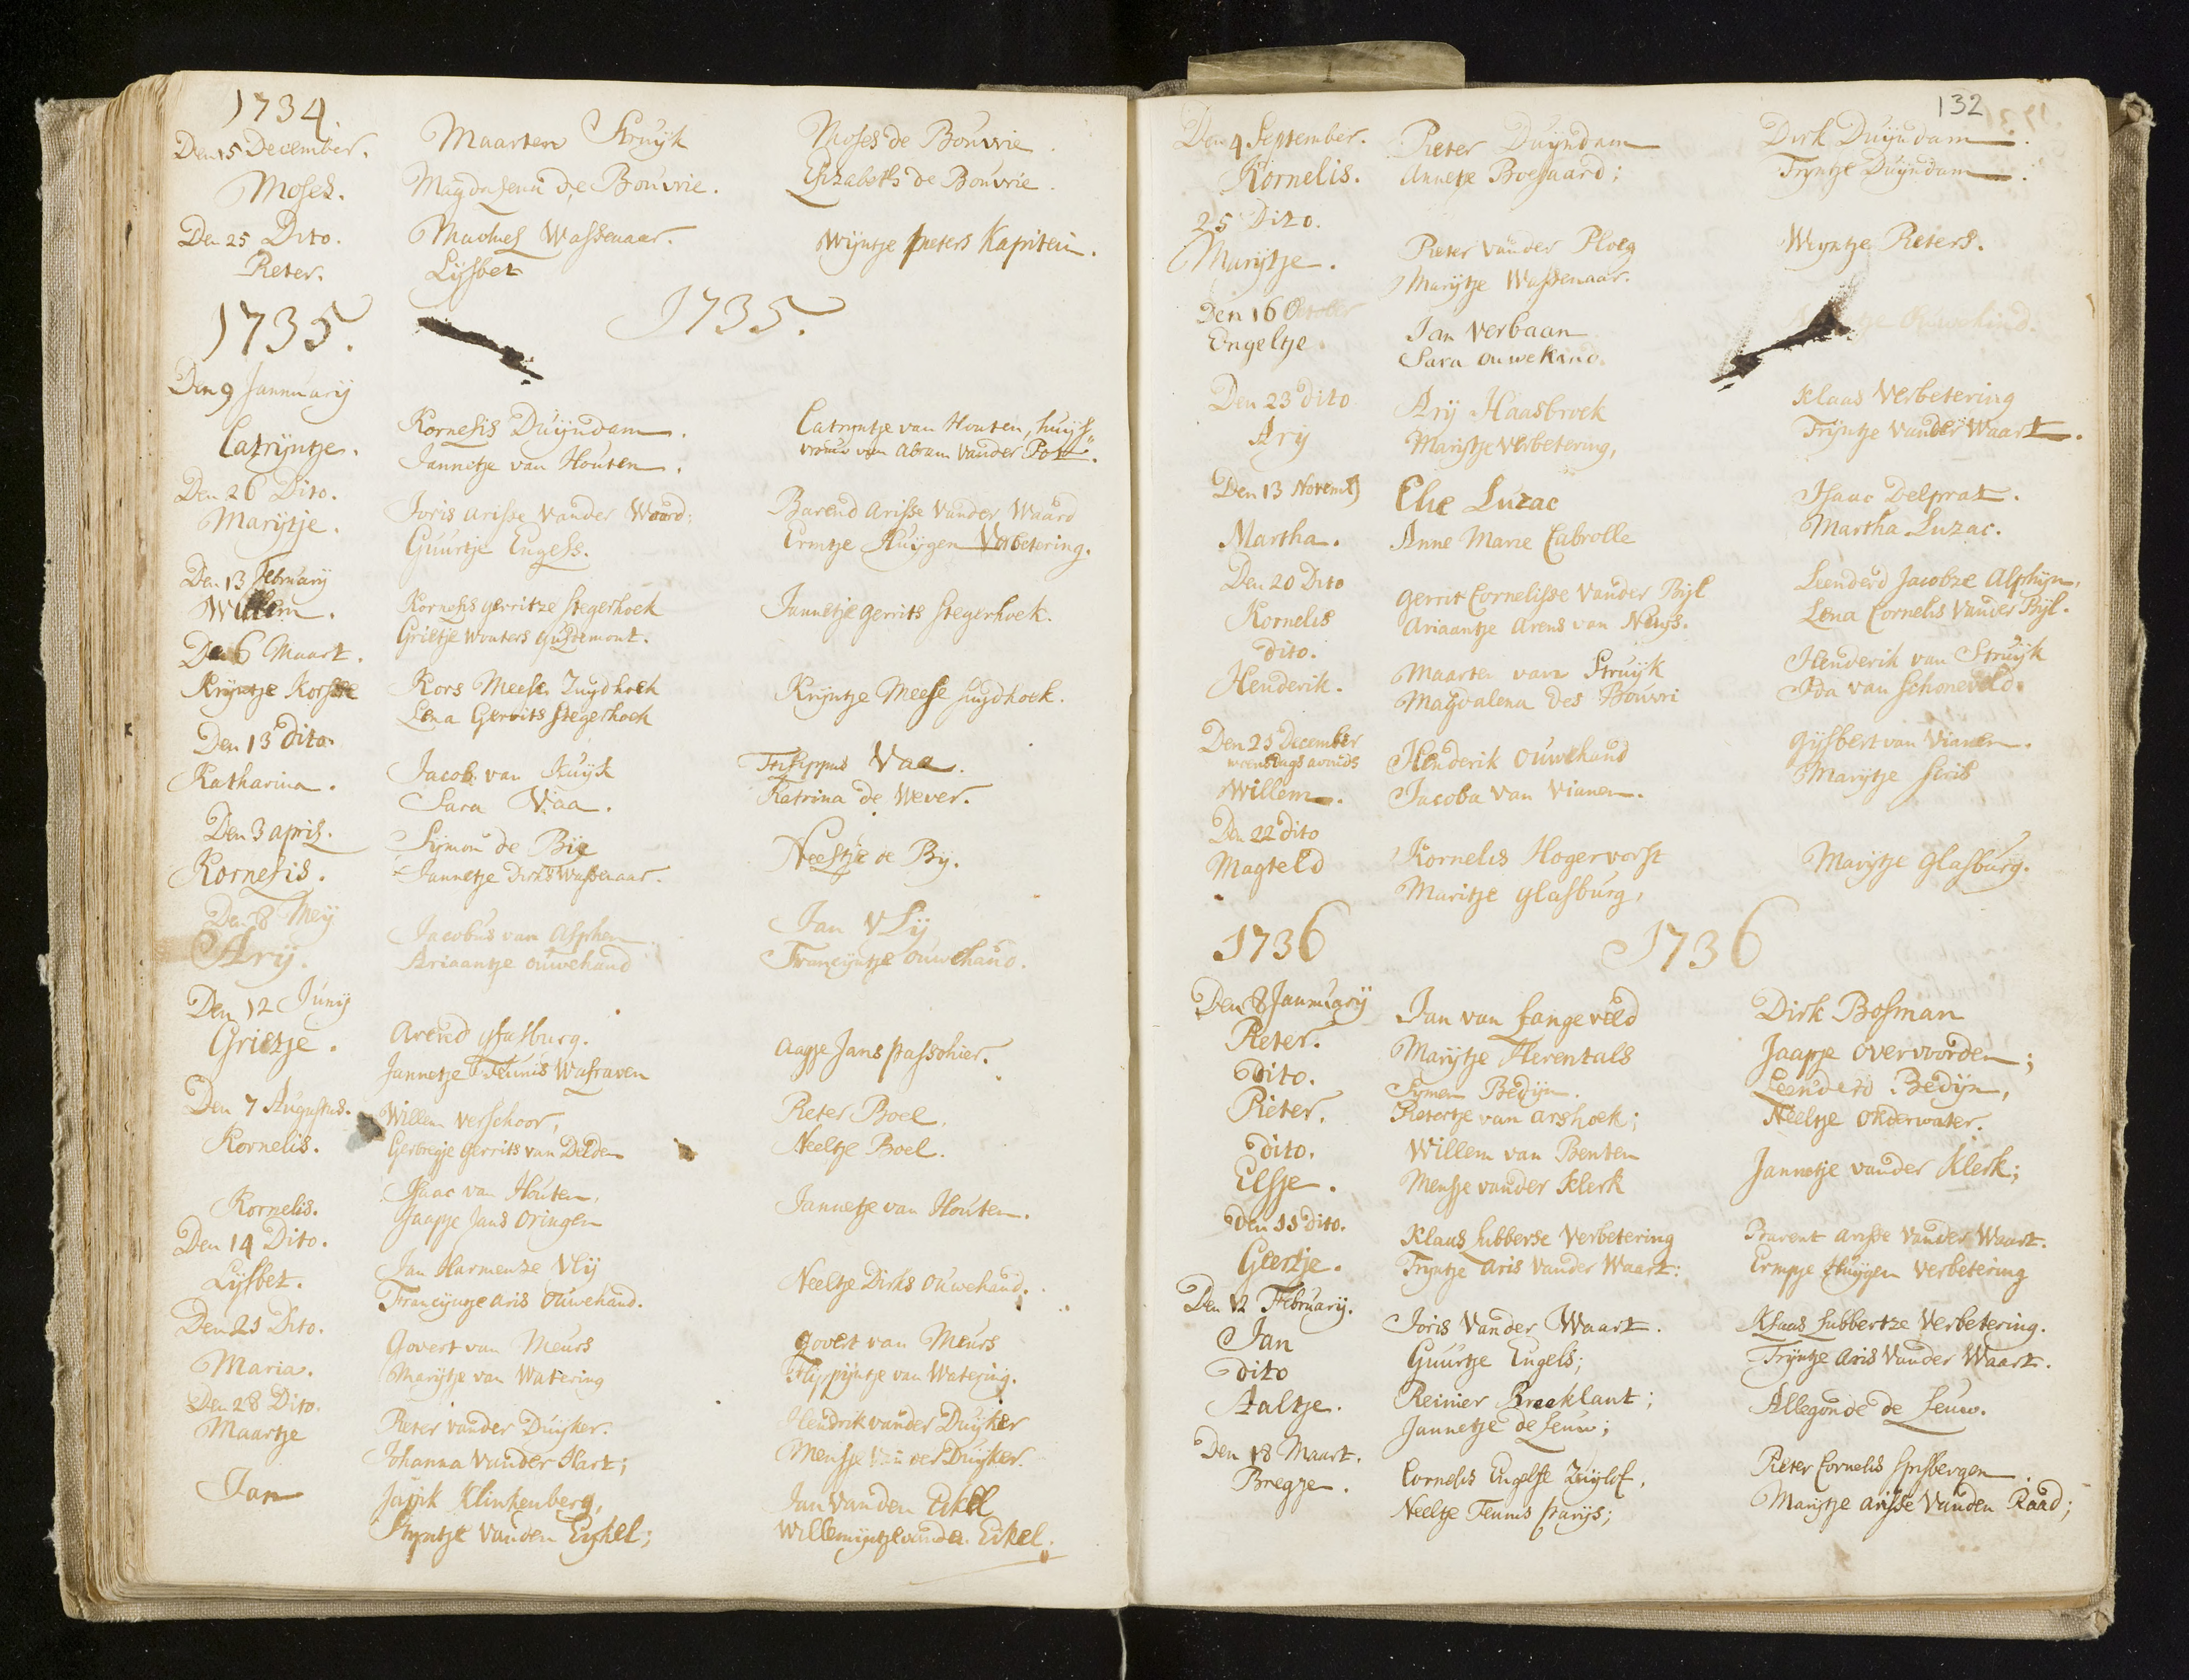 1734.
Den 15 December. Maarten Struijk Moses de Bouvrie.
Moses. Magdalena de Bouvrie. Elizabeth de Bouvrie.
Den 25 Dito. Wassenaar. Wijntje pieters Kapitein.
Pieter. Lijsbet
1735. 1735.
Den 9 Jannuarij
Catrijntje. Kornelis Duijndam. Catrijntje van Houten, huijs
Jannetje van Houten. vrouw van Abram vander Pot.
Den 26 Dito.
Marijtje. Joris arisse vander Waard; Barend Arisse vander Waard
Guurtje Engels. Ermtje Huijgen Verbetering.
Den 13 February
Willem. Kornelis gerritze Stegerhoek Jannetje gerrits Stegerhoek.
Grietje Wouters
Den 6 Maart.
Krijntje Korsse Kors Meese Zuijdhoek Krijntje Meese Suijdhoek.
Lena Gerrits Stegerhoek
Den 13 dito.
Katharina. Jacob van Kuijk Vaa.
Sara Vaa. Katrina de Wever.
Den 3 april.
Kornelis. Sijmon de Bije Neeltje de Bij.
Jannetje Dirks Wassenaar.
Den 8 Meij
Arij. Jacobus van Alphen Jan Vlij
Ariaantje ouwehand Francijntje ouwehand.
Den 12 Junij
Grietje. Arend Glasburg. Aagje Jans passchier.
Jannetje Teunis Walraven
Den 7 Augustus. Willem Verschoor, Pieter Boel.
Kornelis. Gerbregje gerrits van Delden Neeltje Boel.
Isaac van Houten,
Kornelis. Jaapje Jans Oringen Jannetje van Houten.
Den 14 Dito.
Lijsbet. Jan Harmense Vlij Neeltje Dirks Ouwehand.
Francijntje Aris Ouwehand.
Den 21 Dito.
Maria. Govert van Meurs Govert van Meurs
Marijtje van Watering Flippijntje van Watering.
Den 28 Dito.
Maartje Pieter vander Duijker. Hendrik vander Duijker
Johanna vander Hart; Mensje vander Duijker.
Jan Klinkenberg, Jan vanden Eikel
vanden Eijkel; Willemijntje vanden Eikel.
132
Den 4 September. Pieter Duijndam Dirk Duijndam.
Kornelis. Annetje Boegaard; Trijntje Duijndam.
25 Dito.
Marijtje. Pieter vander Ploeg Wijntje Pieters.
Marijtje Wassenaar.
Den 16 October
Engeltje. Jan Verbaan
Sara ouwekind.
Den 23 dito
Arij Arij Haasbroek Klaas Verbetering
Marijtje Verbetering, Trijntje vander Waart.
Den 13 Novemb
Martha. Elie Luzac Isaac Delprat.
Anne Marie Cabrolle Martha Luzac.
Den 20 Dito
Kornelis gerrit Cornelisse vander Bijl Leenderd Jacobze Alphijn,
Ariaantje Arens van Neijs. Lena Cornelis vander Bijl.
dito.
Henderik. Maarten van Struijk Henderik van Struijk
Magdalena des Bouvri Ida van Schoneveld.
Den 21 December
woensdags avonds Henderik Ouwehand Gijsbert van Vianen.
Willem. Jacoba van Vianen. Marijtje
Den 22 dito
Magteld Kornelis Hogervorst Marijtje Glasburg.
Maritje Glasburg,
1736 1736
Den 8 Jannuarij
Pieter. Jan van Langeveld Dirk Bosman
Marijtje Herentals Jaapje Overvoorden;
Dito.
Pieter. Symen Bedijn. Leenderd Bedijn,
Pietertje van Arshoek; Neeltje Onderwater.
dito.
Elsje. Willem van Benten Jannetje vander Klerk;
Mensje vander Klerk
Den 11 dito.
Geertje. Klaas Lubberse Verbetering Barent Arisse vander Waart.
Trijntje Aris vander Waart: Ermpje Huijgen Verbetering
Den 12 February.
Jan Joris vander Waart. Klaas Lubbertze Verbetering.
Guurtje Engels; Trijntje Aris vander Waart.
dito
Aaltje. Reinier Breeklant; Allegonde de Leuw.
Jannetje de Leuw;
Den 18 Maart.
Bregje. Cornelis Engelse Zuijlof. Pieter Cornelis
Neeltje Teunis parijs; Marijtje Arisse vanden Raad;